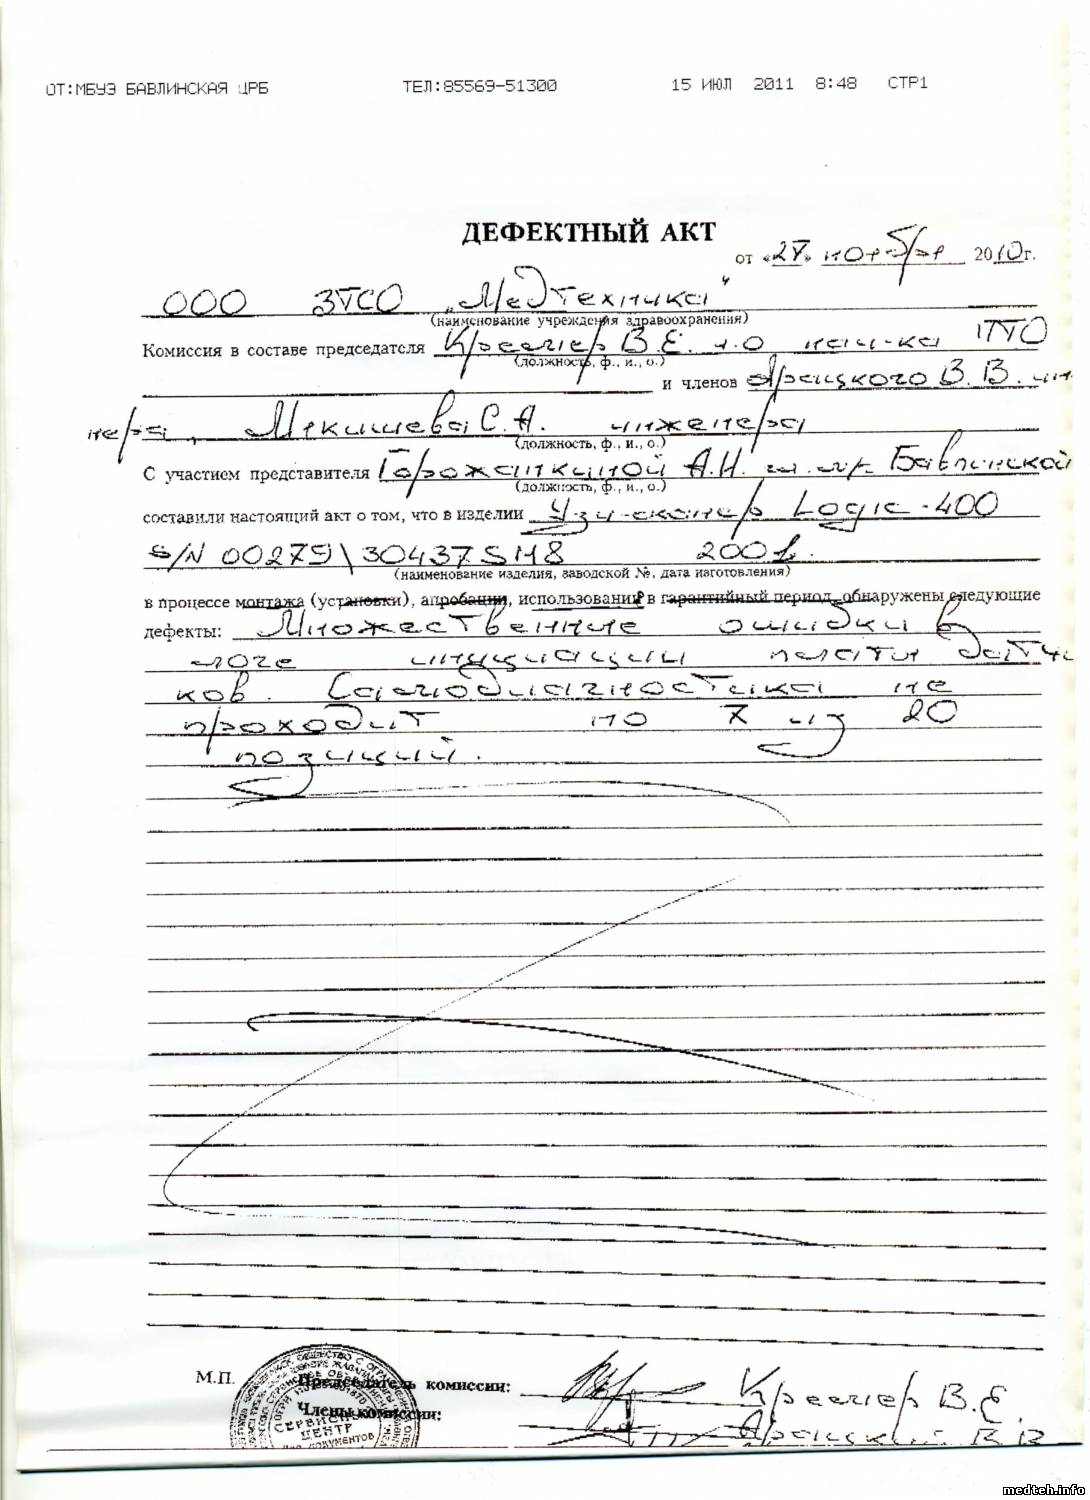 ОТ:МБУЗ БАВЛИНСКАЯ ЦРБ ТЕЛ:85569-51300 15 ИЮЛ 2011 8:48 СТР1
ДЕФЕКТНЫЙ АКТ
от «27» ноября 2010г.
ООО ЗТСО „Медтехника"
(наименование учреждения здравоохранения)
Комиссия в составе председателя В.Е. и.о нач-ка ПТО
(должность, ф., и., о.)
и членов В.В. ин
нера, Мякишева С.А. инженера
(должность, ф., и., о.)
С участием представителя Горожанкиной А.Н. Бавлинской
(должность, ф., и., о.)
составили настоящий акт о том, что в изделии Узи-сканер Logic-400
S/N 00279\304375M8 2001.
(наименование изделия, заводской №, дата изготовления)
в процессе монтажа (установки), апробации, использования в гарантийный период обнаружены следующие
дефекты: Множественные ошибки в
логе инициации платы датчи
ков. Самодиагностика не
проходит по 7 из 20
позиций.
М.П. Председатель комиссии: В.Е.
Члены комиссии: В.В
СЕРВИСНЫЙ
ЦЕНТР
ДЛЯ ДОКУМЕНТОВ
medteh.info